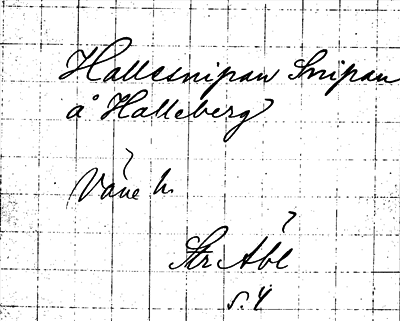 Hallesnipan Snipan
å Halleberg
Väne h.
Str Abl
s. 4